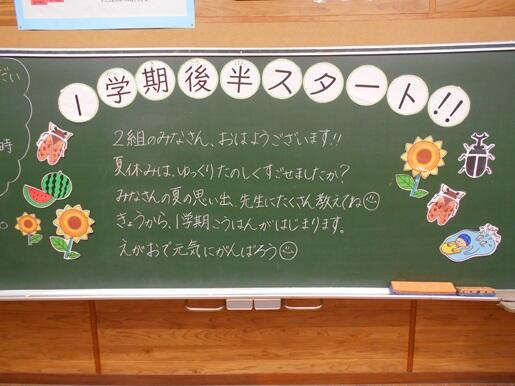 1学期後半スタート!!
2組のみなさん、おはようございます!!
夏休みは、ゆっくりたのしくすごせましたか?
みなさんの夏の思い出、先生にたくさん教えてね
きょうから、1学期こうはんがはじまります。
えがおで元気にがんばろう
ださい
時